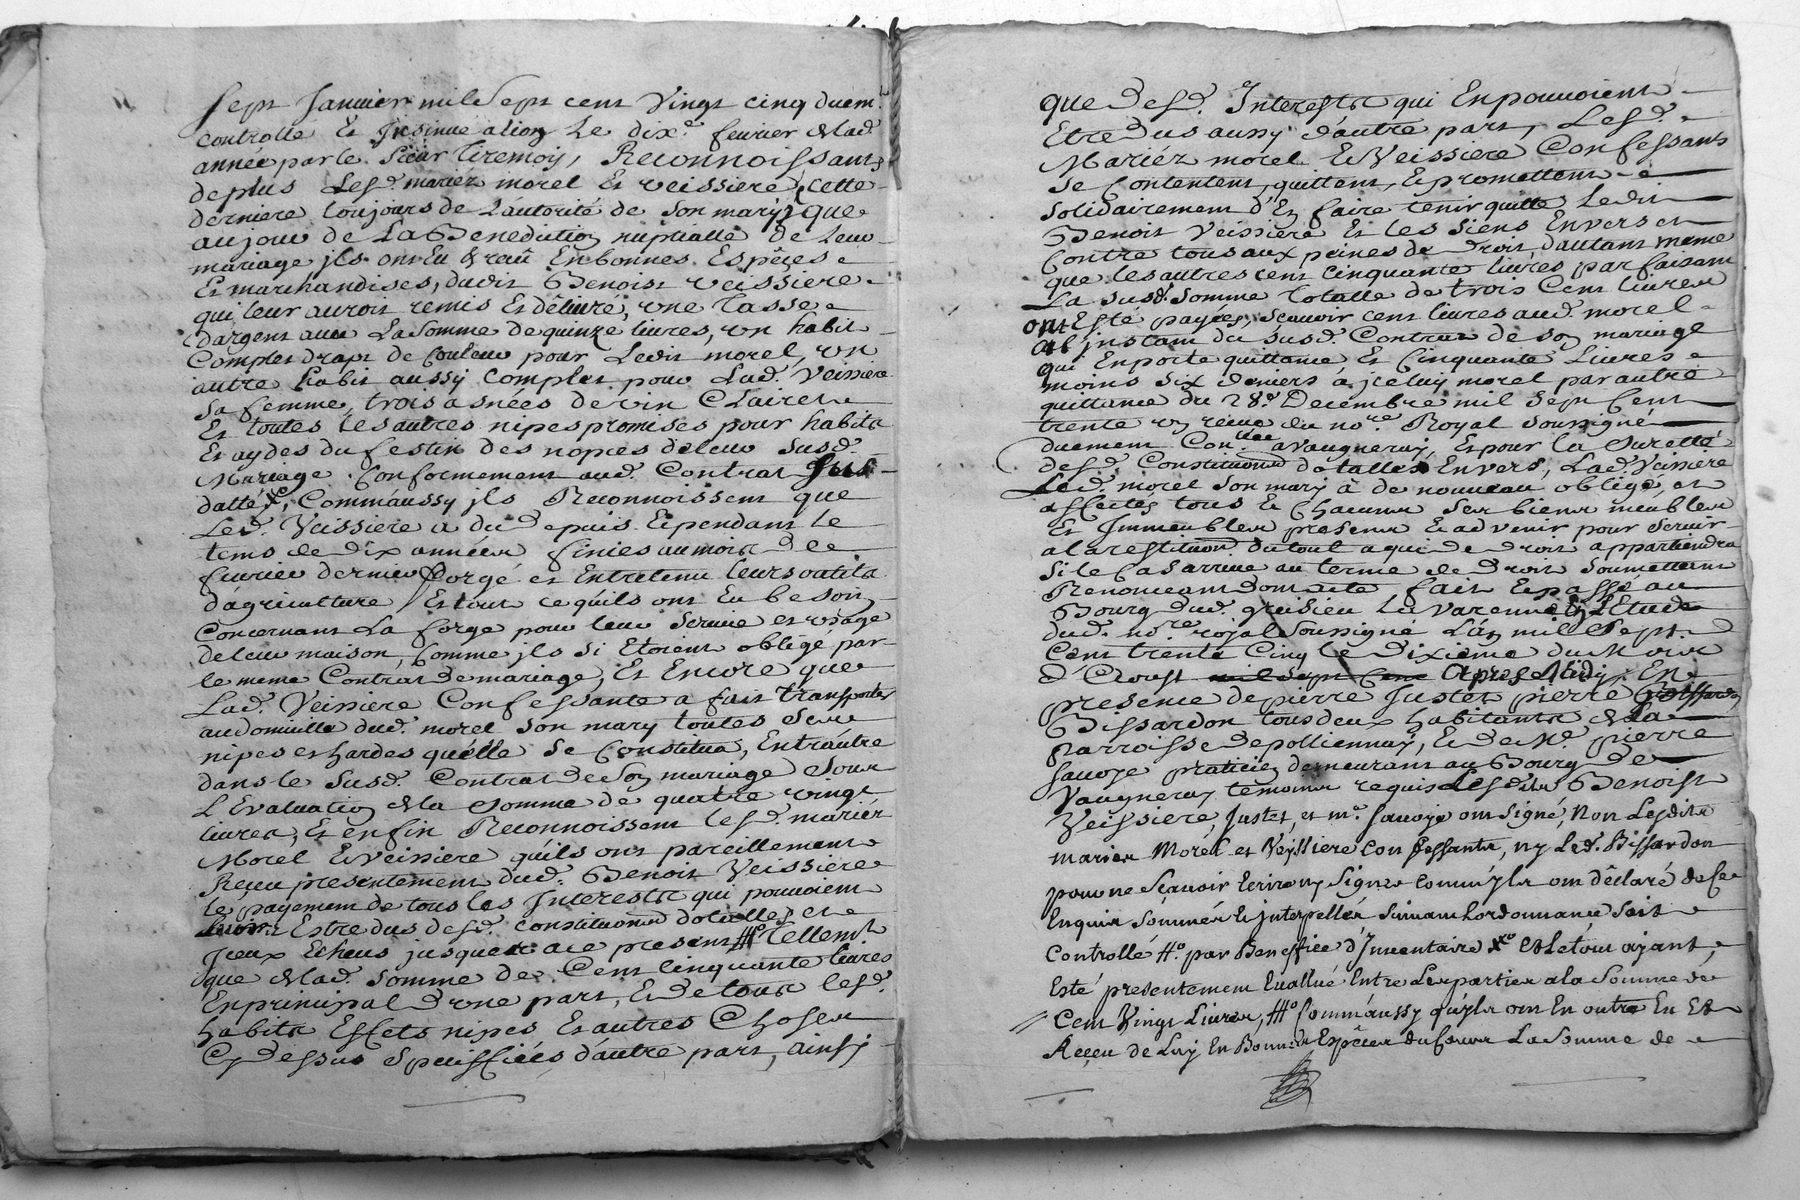 Sept Janvier mil Sept cent Vingt cinq duem.t
controllé Et Insinué a lion Le dix.e fevrier de lad.
année par le Sieur Tiremoy, Reconnoissant
de plus Lesd. mariéz morel Et veissiere (cette
derniere toujours de L'autorité de Son mary) que
au jour de La Benediction nuptialle de Leur
mariage jls ont Eu & receu En bonnes Espèces
Et marchandises, dudit Benoist veissiere
qui leur auroit remis Et délivré, une Tasse
d'argent avec La Somme de quinze livres, un habit
Complet drapt de Couleur pour Ledit morel, un
autre habit aussy Complet pour Lad. Veissiere
Sa femme, trois asnées de vin Clairet
Et toutes les autres nipes promises pour habits
Et aydes du festin des nopces de leur Susd.
Mariage Conformement aud. Contrat Sus
datté, Comm'aussy jls Reconnoissent que
Led. Veissiere a du depuis Et pendant le
tems de dix années finies au mois de
fevrier dernier forgé et Entretenu leurs outils
d'agriculture Et tout ce qu'ils ont Eu besoin
Concernant La forge pour leur Service et usage
de leur maison, Comme jls si Etoient obligé par
le meme Contrat de mariage, Et Encore que
Lad. Veissiere Confessante a fait transporter
au domicille dud. morel Son mary toutes Ses
nipes et hardes qu'elle Se Constitua, Entr'autre
dans le Susd. Contrat de Son mariage Sous
L'Evaluation de la Somme de quatre vingt
livres, Et enfin Reconnoissent lesd. mariéz
Morel Et Veissiere qu'ils ont pareillement
Reçeu presentement dud. Benoit Veissiere
le payement de tous les Interests qui pouvoient
Estre dus desd. constitutions dotalles et
jceux Echeus jusques a ce present Tellem.t
que de lad. Somme de Cent Cinquante livres
En principal d'une part, Et de tous lesd.
habits Effets nipes Et autres Choses
Cy dessus Speciffiées d'autre part, ainsy
que desd. Interests qui En pouvoient
Etre dus aussy d'autre part, Lesd.
Mariéz morel Et Veissiere Confessants
Se Contentent, quittent, Et promettent
Solidairement d'En faire tenir quitte Ledit
Benoit Veissiere Et les Siens Envers et
Contre tous aux peines de droit d'autant meme
que les autres cent cinquante livres parfaisant
La Susd. Somme Totalle de trois Cent livres
ont Esté payées, Sçavoir cent livres aud. morel
a l'instant du Susd. Contrat de Son mariage
qui En porte quittance Et Cinquante Livres
moins Six deniers à jceluy morel par autre
quittance du 28.e Decembre mil Sept Cent
trente un reçue du no.re Royal Soussigné
duement Con.llée a Vaugneray, Et pour la Sureté
desd. Constitutions dotalles Envers, Lad. Veissiere
Led. morel Son mary à de nouveau obligé, et
affectés tous Et Chacuns Ses biens meubles
Et Immeubles presens Et advenir pour Servir
a la restitution du tout a qui de droit appartiendra
Si le Cas arrive au terme de droit Soumettant
Renonceant dont acte fait Et passé au
Bourg dud. Grésieu La varenne En L'Etude
dud. no.re royal Soussigné L'an mil Sept
Cent trente Cinq le Dixieme du Mois
d'Aoust mil Sept Cent Apres Midy En
presence de pierre Justet, pierre
Bissardon tous deux habitants de la
parroisse de pollionnay, Et de M.e pierre
Savoye praticien demeurant au Bourg de
Vaugneray temoins requis Lesdits Benoist
Veissiere, Justet, et m.e Savoye ont Signé, Non Lesdits
mariés Morel et Veyssiere Confessants, ny Led. Bissardon
pour ne Sçavoir Ecrire ny Signer Comm'yls ont déclaré de Ce
Enquis Sommés Et jnterpellés Suivant Lordonnance Soit
Controllé #.o par Beneffice d'Inventaire X.o Et Le tout ayant,
Esté presentement Evallué Entre Les parties a la Somme de
Cent Vingt Livres, ##.o Comm'aussy qu'yls ont En outre Eu Et
Reçeu de Luy En Bonnes Espêces du Cours La Somme de